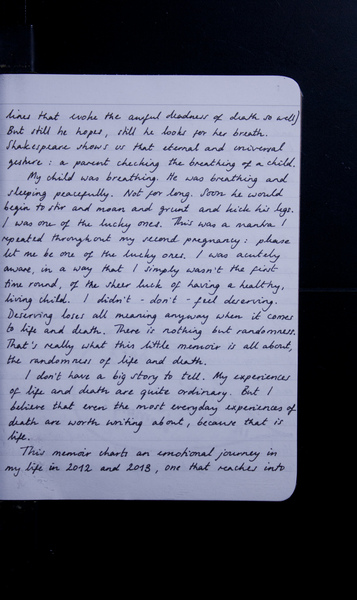 lines that evoke the awful deadness of death so well)
But still he hopes, still he looks for her breath.
Shakespeare shows us that eternal and universal
gesture: a parent checking the breathing of a child.
My child was breathing. He was breathing and
sleeping peacefully. Not for long. Soon he would
begin to stir and moan and grunt and kick his legs.
I was one of the lucky ones. This was a mantra I
repeated throughout my second pregnancy: please
let me be one of the lucky ones. I was acutely
aware, in a way that I simply wasn't the first
time round, of the sheer luck of having a healthy,
living child. I didn't - don't - feel deserving.
Deserving loses all meaning anyway when it comes
to life and death. There is nothing but randomness.
That's really what this little memoir is all about,
the randomness of life and death.
I don't have a big story to tell. My experiences
of life and death are quite ordinary. But I
believe that even the most everyday experiences of
death are worth writing about, because that is
life.
This memoir charts an emotional journey in
my life in 2012 and 2013, one that reaches into